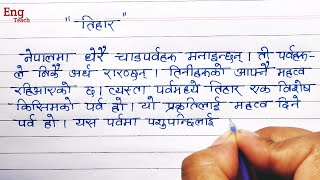 Eng
Teach
"तिहार"
नेपालमा धेरै चाडपर्वहरू मनाइन्छन्। ती पर्वहरू-
ले बिर्कै अर्थ राख्छन्। तिनीहरूको आफ्नै महत्व
रहिआएको छ। त्यस्ता पर्वमध्ये तिहार एक विशेष
किसिमको पर्व हो। यो प्रकृतिलाई महत्व दिने
पर्व हो। यस पर्वमा पशुपन्छीलाई